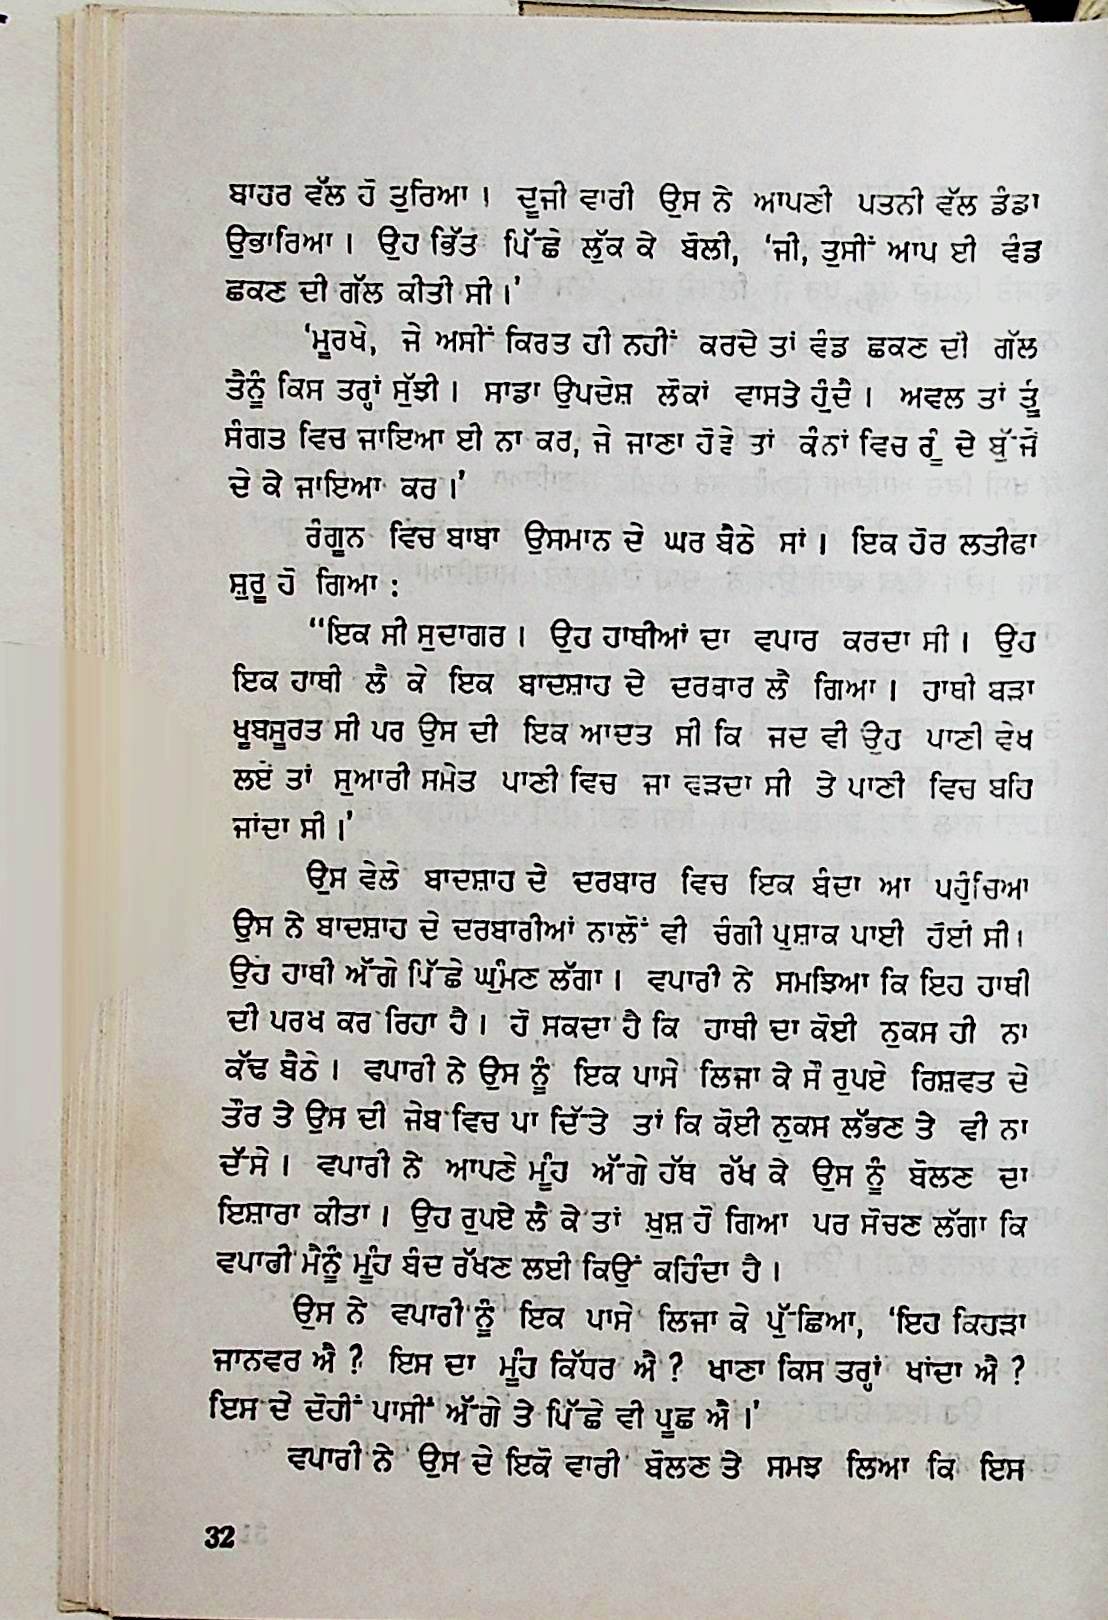 ਬਾਹਰ ਵੱਲ ਹੋ ਤੁਰਿਆ । ਦੂਜੀ ਵਾਰੀ ਉਸ ਨੇ ਆਪਣੀ ਪਤਨੀ ਵੱਲ ਡੰਡਾ
ਉਭਾਰਿਆ । ਉਹ ਭਿੱਤ ਪਿੱਛੇ ਲੁੱਕ ਕੇ ਬੋਲੀ, ‘ਜੀ, ਤੁਸੀਂ ਆਪ ਈ ਵੰਡ
ਛਕਣ ਦੀ ਗੱਲ ਕੀਤੀ ਸੀ।’
‘ਮੂਰਖੇ, ਜੇ ਅਸੀਂ ਕਿਰਤ ਹੀ ਨਹੀਂ ਕਰਦੇ ਤਾਂ ਵੰਡ ਛਕਣ ਦੀ ਗੱਲ
ਤੈਨੂੰ ਕਿਸ ਤਰ੍ਹਾਂ ਸੁੱਝੀ । ਸਾਡਾ ਉਪਦੇਸ਼ ਲੋਕਾਂ ਵਾਸਤੇ ਹੁੰਦੈ । ਅਵਲ ਤਾਂ ਤੂੰ
ਸੰਗਤ ਵਿਚ ਜਾਇਆ ਈ ਨਾ ਕਰ, ਜੇ ਜਾਣਾ ਹੋਵੇ ਤਾਂ ਕੰਨਾਂ ਵਿਚ ਰੂੰ ਦੇ ਬੁੱਜੇ
ਦੇ ਕੇ ਜਾਇਆ ਕਰ ।’
ਰੰਗੂਨ ਵਿਚ ਬਾਬਾ ਉਸਮਾਨ ਦੇ ਘਰ ਬੈਠੇ ਸਾਂ । ਇਕ ਹੋਰ ਲਤੀਫਾ
ਸ਼ੁਰੂ ਹੋ ਗਿਆ :
“ਇਕ ਸੀ ਸੁਦਾਗਰ । ਉਹ ਹਾਥੀਆਂ ਦਾ ਵਪਾਰ ਕਰਦਾ ਸੀ । ਉਹ
ਇਕ ਹਾਥੀ ਲੈ ਕੇ ਇਕ ਬਾਦਸ਼ਾਹ ਦੇ ਦਰਬਾਰ ਲੈ ਗਿਆ । ਹਾਥੀ ਬੜਾ
ਖੂਬਸੂਰਤ ਸੀ ਪਰ ਉਸ ਦੀ ਇਕ ਆਦਤ ਸੀ ਕਿ ਜਦ ਵੀ ਉਹ ਪਾਣੀ ਵੇਖ
ਲਏ ਤਾਂ ਸੁਆਰੀ ਸਮੇਤ ਪਾਣੀ ਵਿਚ ਜਾ ਵੜਦਾ ਸੀ ਤੇ ਪਾਣੀ ਵਿਚ ਬਹਿ
ਜਾਂਦਾ ਸੀ ।’
ਉਸ ਵੇਲੇ ਬਾਦਸ਼ਾਹ ਦੇ ਦਰਬਾਰ ਵਿਚ ਇਕ ਬੰਦਾ ਆ ਪਹੁੰਚਿਆ
ਉਸ ਨੇ ਬਾਦਸ਼ਾਹ ਦੇ ਦਰਬਾਰੀਆਂ ਨਾਲੋਂ ਵੀ ਚੰਗੀ ਪੁਸ਼ਾਕ ਪਾਈ ਹੋਈ ਸੀ।
ਉਹ ਹਾਥੀ ਅੱਗੇ ਪਿੱਛੇ ਘੁੰਮਣ ਲੱਗਾ । ਵਪਾਰੀ ਨੇ ਸਮਝਿਆ ਕਿ ਇਹ ਹਾਥੀ
ਦੀ ਪਰਖ ਕਰ ਰਿਹਾ ਹੈ । ਹੋ ਸਕਦਾ ਹੈ ਕਿ ਹਾਥੀ ਦਾ ਕੋਈ ਨੁਕਸ ਹੀ ਨਾ
ਕੱਢ ਬੈਠੇ । ਵਪਾਰੀ ਨੇ ਉਸ ਨੂੰ ਇਕ ਪਾਸੇ ਲਿਜਾ ਕੇ ਸੌ ਰੁਪਏ ਰਿਸ਼ਵਤ ਦੇ
ਤੌਰ ਤੇ ਉਸ ਦੀ ਜੇਬ ਵਿਚ ਪਾ ਦਿੱਤੇ ਤਾਂ ਕਿ ਕੋਈ ਨੁਕਸ ਲੱਭਣ ਤੇ ਵੀ ਨਾ
ਦੱਸੇ । ਵਪਾਰੀ ਨੇ ਆਪਣੇ ਮੂੰਹ ਅੱਗੇ ਹੱਥ ਰੱਖ ਕੇ ਉਸ ਨੂੰ ਬੋਲਣ ਦਾ
ਇਸ਼ਾਰਾ ਕੀਤਾ । ਉਹ ਰੁਪਏ ਲੈ ਕੇ ਤਾਂ ਖ਼ੁਸ਼ ਹੋ ਗਿਆ ਪਰ ਸੋਚਣ ਲੱਗਾ ਕਿ
ਵਪਾਰੀ ਮੈਨੂੰ ਮੂੰਹ ਬੰਦ ਰੱਖਣ ਲਈ ਕਿਉਂ ਕਹਿੰਦਾ ਹੈ ।
ਉਸ ਨੇ ਵਪਾਰੀ ਨੂੰ ਇਕ ਪਾਸੇ ਲਿਜਾ ਕੇ ਪੁੱਛਿਆ, ‘ਇਹ ਕਿਹੜਾ
ਜਾਨਵਰ ਐ ? ਇਸ ਦਾ ਮੂੰਹ ਕਿੱਧਰ ਐ ? ਖਾਣਾ ਕਿਸ ਤਰ੍ਹਾਂ ਖਾਂਦਾ ਐ ?
ਇਸ ਦੇ ਦੋਹੀਂ ਪਾਸੀਂ ਅੱਗੇ ਤੇ ਪਿੱਛੇ ਵੀ ਪੂਛ ਐ।’
ਵਪਾਰੀ ਨੇ ਉਸ ਦੇ ਇਕੋ ਵਾਰੀ ਬੋਲਣ ਤੇ ਸਮਝ ਲਿਆ ਕਿ ਇਸ
32